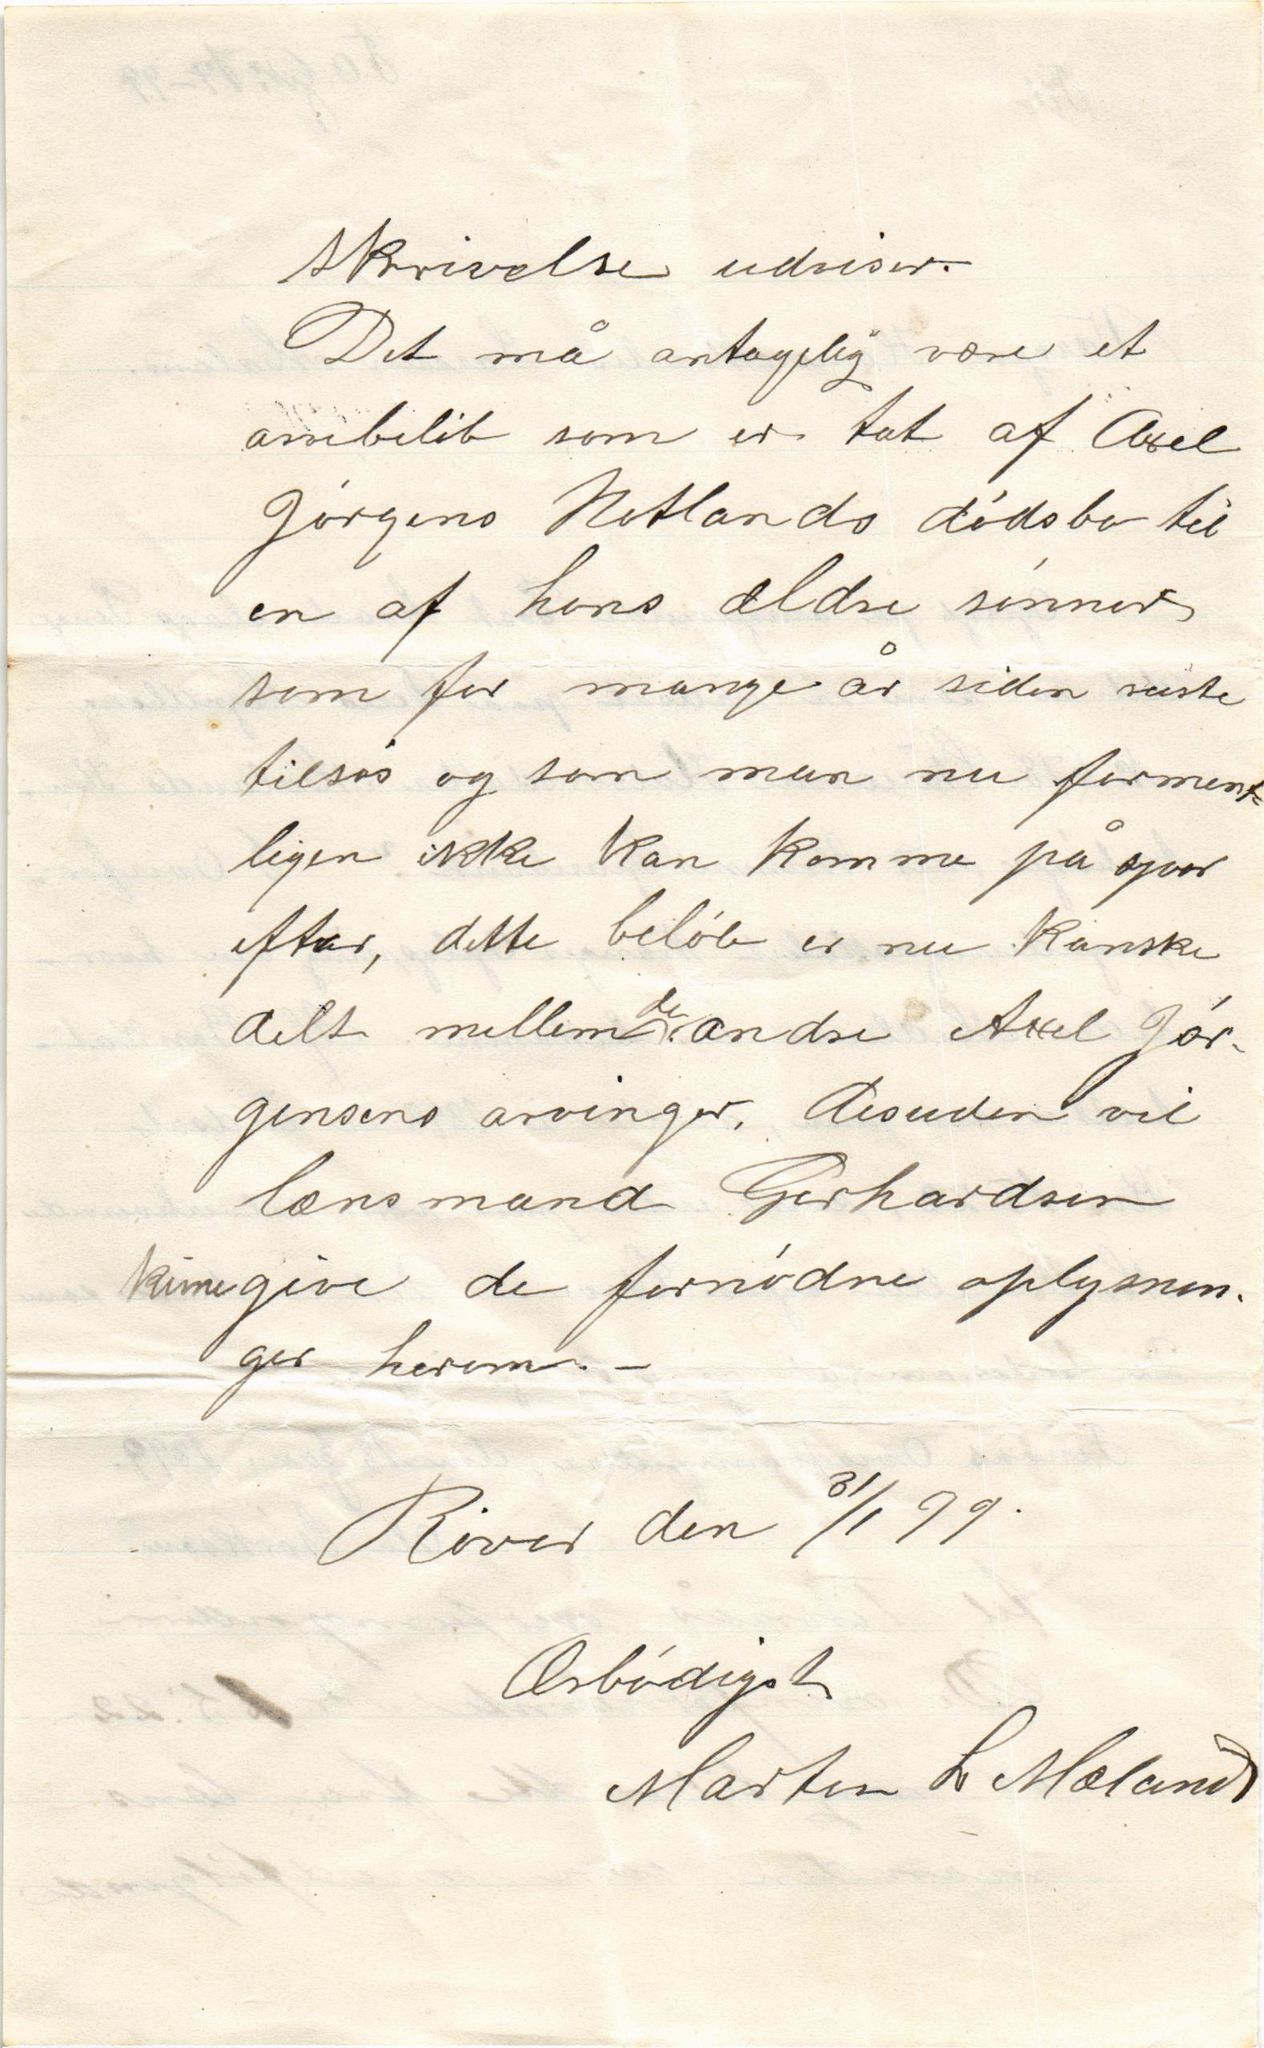 skrivelse udviser.
Det må antagelig være et
arvebeløb som er tat af Axel
Jørgens Netlands dødsbo til
en af hans ældre sønner
som for mange år siden reiste
tilsøs og som man nu forment-
ligen ikke kan komme på spor
efter, dette beløb er nu kanske
delt mellem de andre Axel Jør-
gensens arvinger. Desuden vil
lensmand Gerhardsen
kune give de fornødne oplysnin-
ger herom. -
den 31/1 99.
Ærbødigst
Marten L Mæland